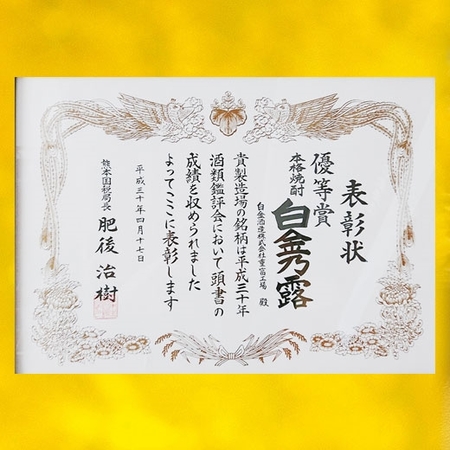 表彰状
優等賞
本格焼酎 白金乃露
白金酒造株式会社重富工場 殿
貴製造場の銘柄は平成三十年
酒類鑑評会において頭書の
成績を収められました
よってここに表彰します
平成三十年四月十七日
熊本国税局長 肥後治樹